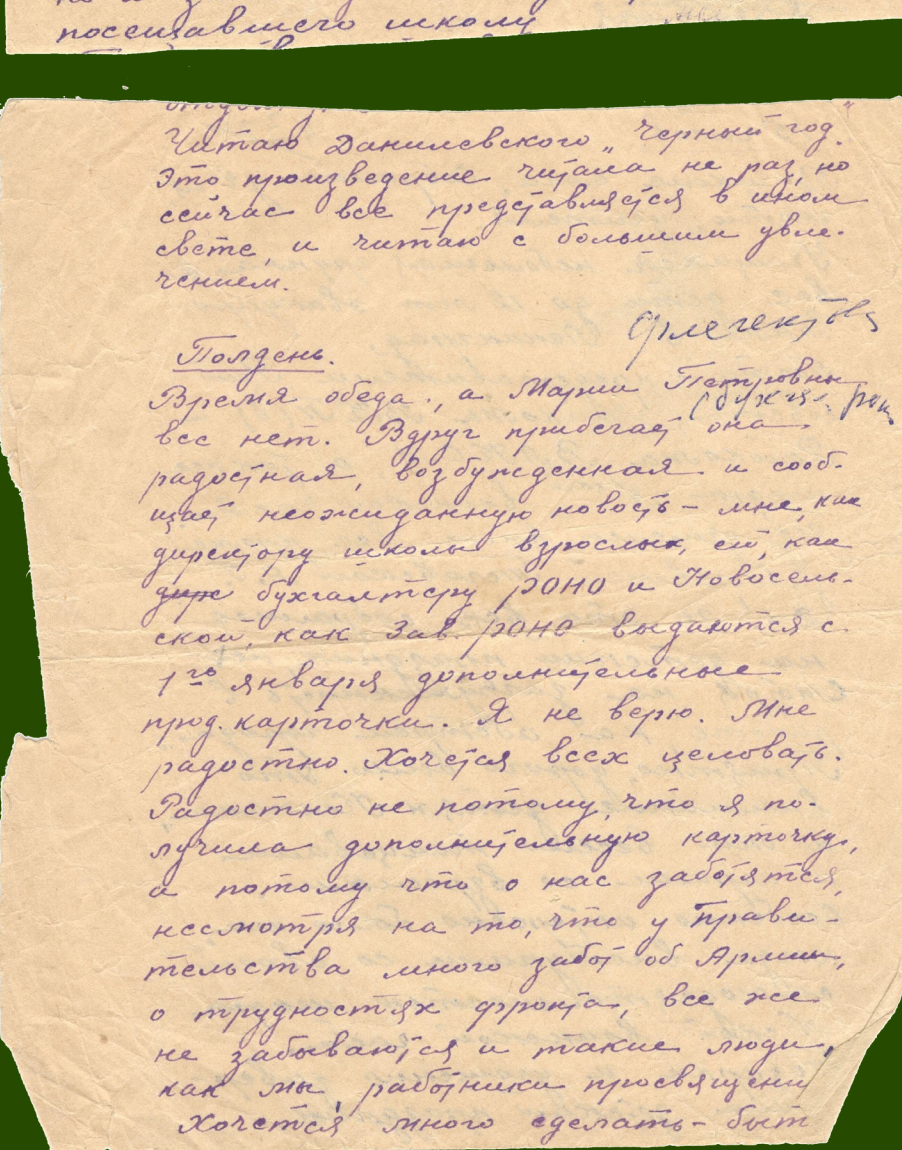 посещавшего школу
Читаю Данилевского „Черный год."
Это произведение читала не раз, но
сейчас все представляется в ином
свете, и читаю с большим увле-
чением.
Полдень.
Время обеда, а Марии Петровны
(бухг.
все нет. Вдруг прибегает она
радостная, возбужденная и сооб-
щает неожиданную новость – мне, как
директору школы взрослых, ей, как
дир бухгалтеру РОНО и Новосель-
ской, как Зав. РОНО выдаются с
1го января дополнительные
прод. карточки. Я не верю. Мне
радостно. Хочется всех целовать.
Радостно не потому, что я по-
лучила дополнительную карточку,
а потому что о нас заботятся,
несмотря на то, что у Прави-
тельства много забот об Армии,
о трудностях фронта, все же
не забываются и такие люди,
как мы, работники просвящени
Хочется много сделать – быт